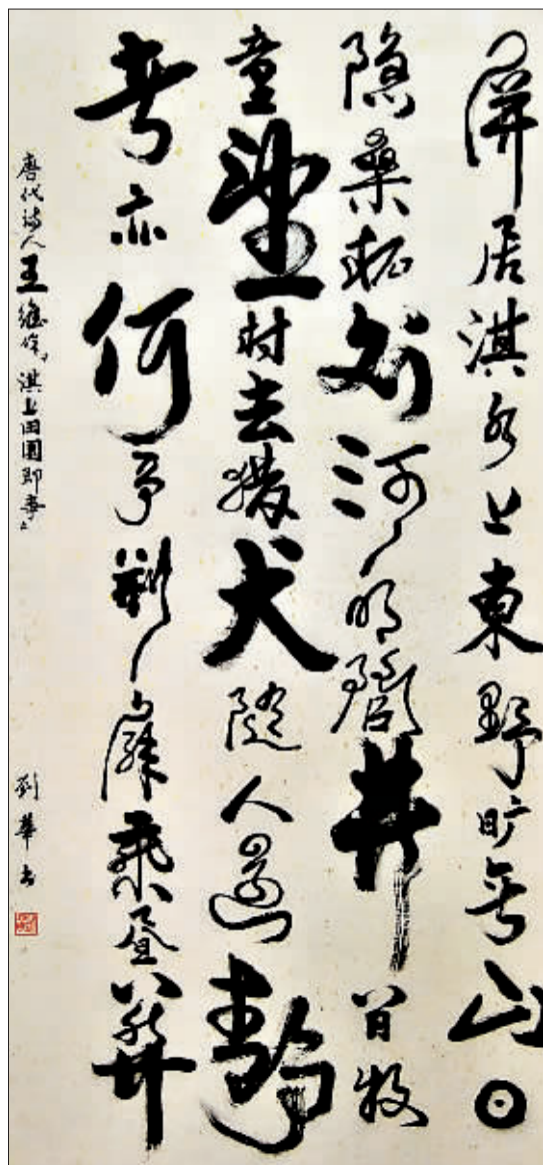 屏居淇水上東野旷無山日
隐桑柘外河明閭井间牧
童望村去猎犬随人還靜
者亦何事荆扉乘昼関
唐代诗人王維作「淇上田園即事」
刘華书